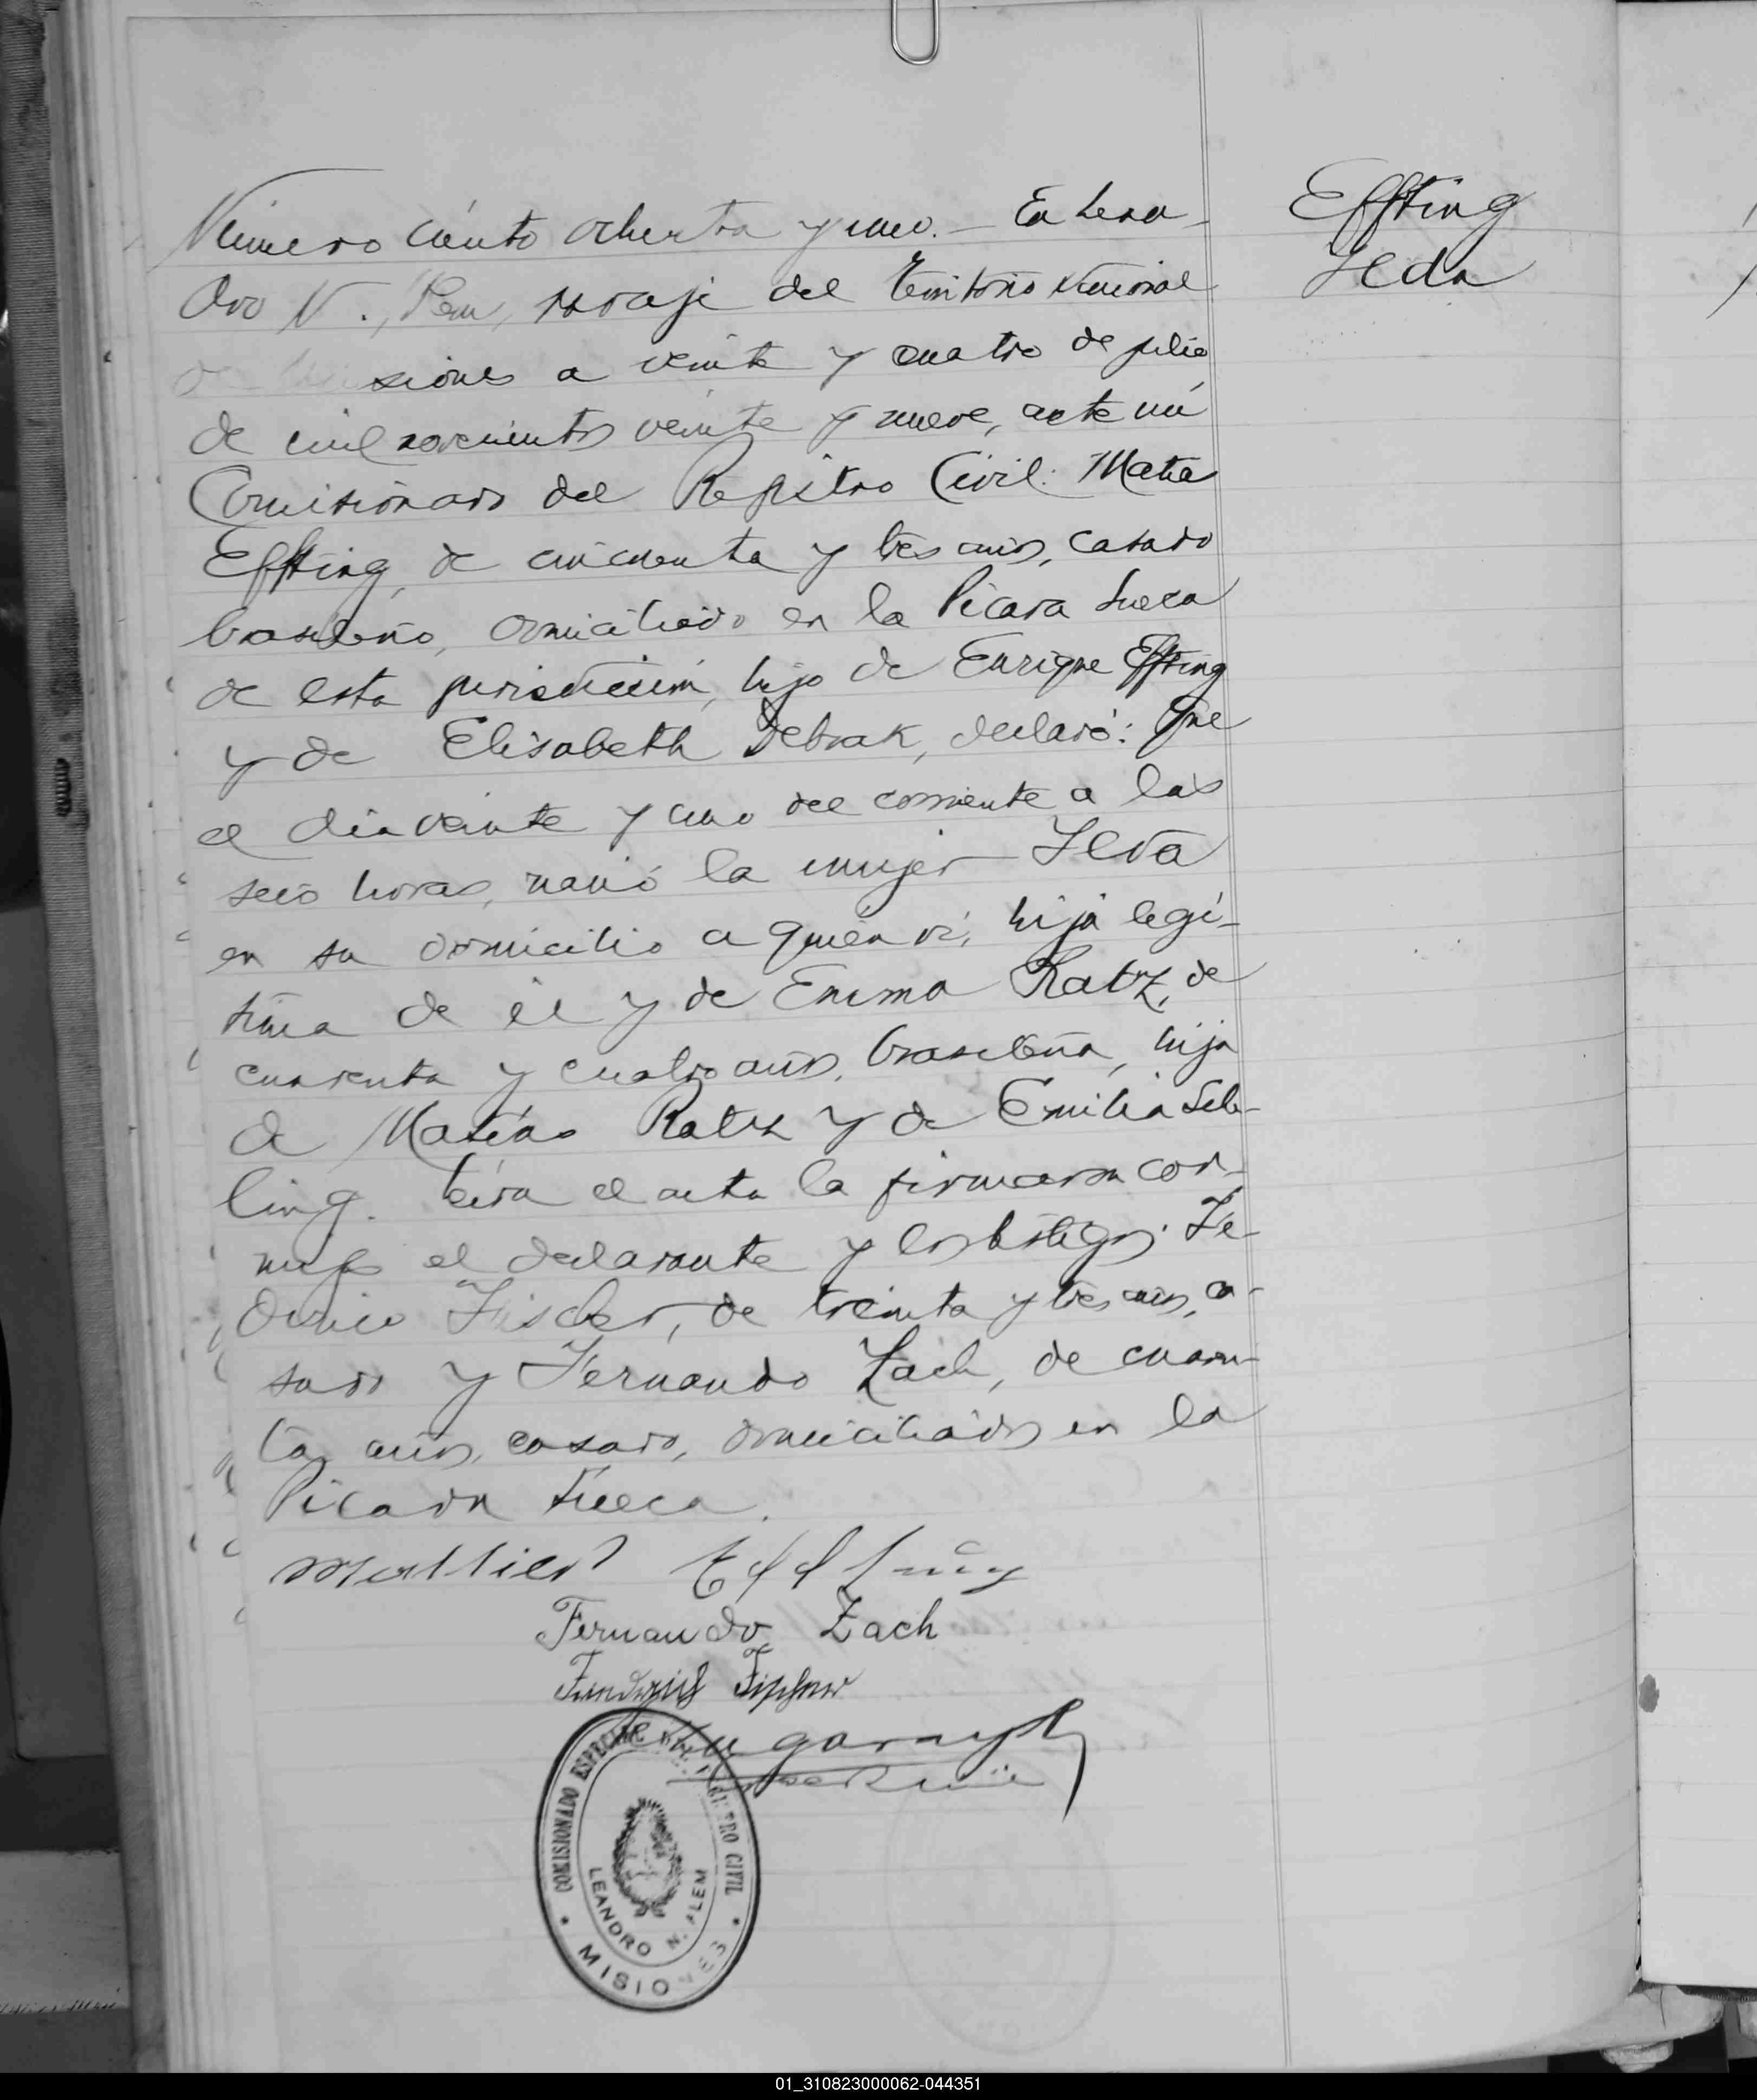 Número ciento ochenta y uno.- En Lean-
dro N. Alem, paraje del Territorio Nacional
de Misiones a veinte y cuatro de julio
de mil novecientos veinte y nueve, ante mí
Comisionado del Registro Civil: Matia
Effting, de cincuenta y tres años, casado
brasileño, domiciliado en la Picada Sueca
de esta jurisdicción, hijo de Enrique Effting
y de Elisabeth Debrak, declaró: Que
el dia veinte y uno del corriente a las
seis horas, nació la mujer Ilda
en su domicilio a quien ví, hija legí-
tima de él y de Emma Ratz, de
cuarenta y cuatro años, brasileña, hija
de Matías Ratz y de Emilia Seh-
ling. Leida el acta la firmaron con-
migo el declarante y los testigos: Fe-
derico Fischer, de treinta y tres años, ca-
sado y Fernando Zach, de cuaren-
ta años, casado, domiciliados en la
Picada Sueca.
Mathias Effting
Fernando Zach
Friedrich Fischer
COMISIONADO ESPECIAL DEL REGISTRO CIVIL
LEANDRO N. ALEM
MISIONES
Effting
Ilda
01_310823000062-044351